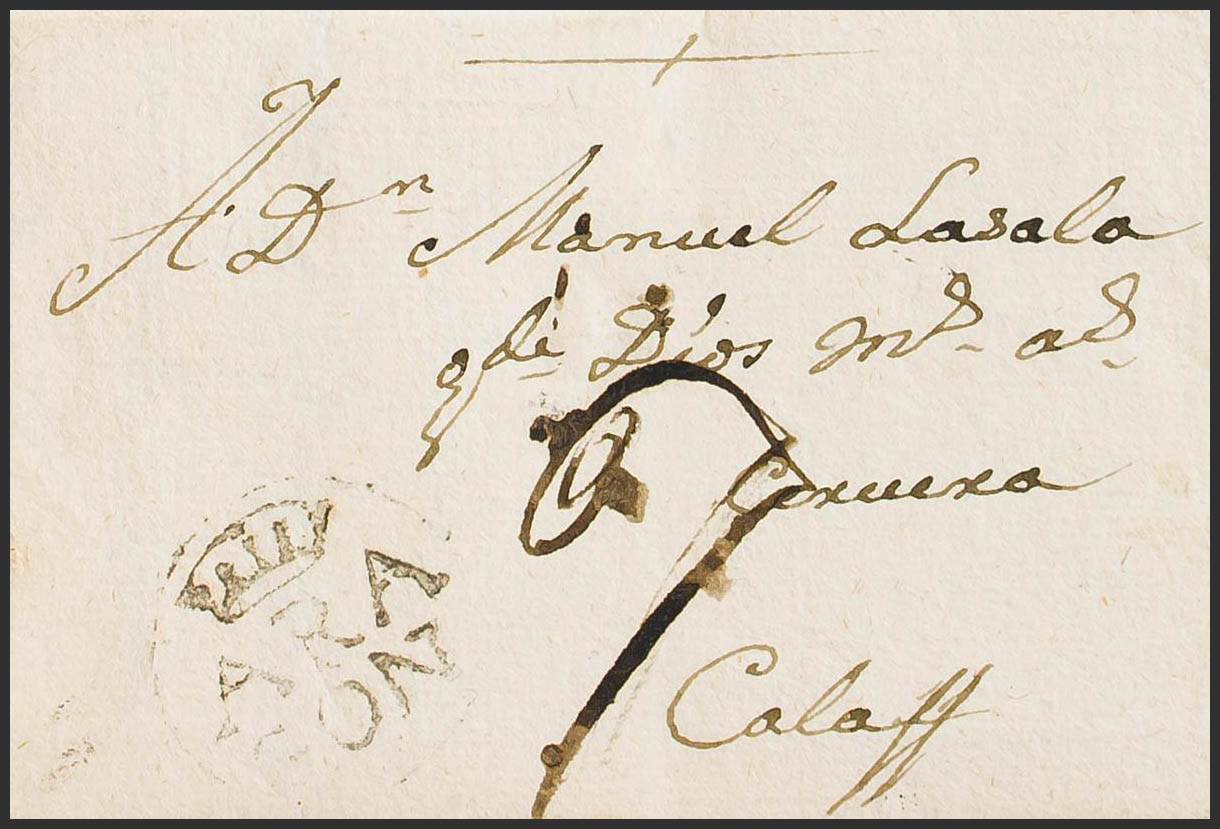 A Dn Manuel Lasala
q.e Dios md as
Cervera
7
Calaff
ARA
ON